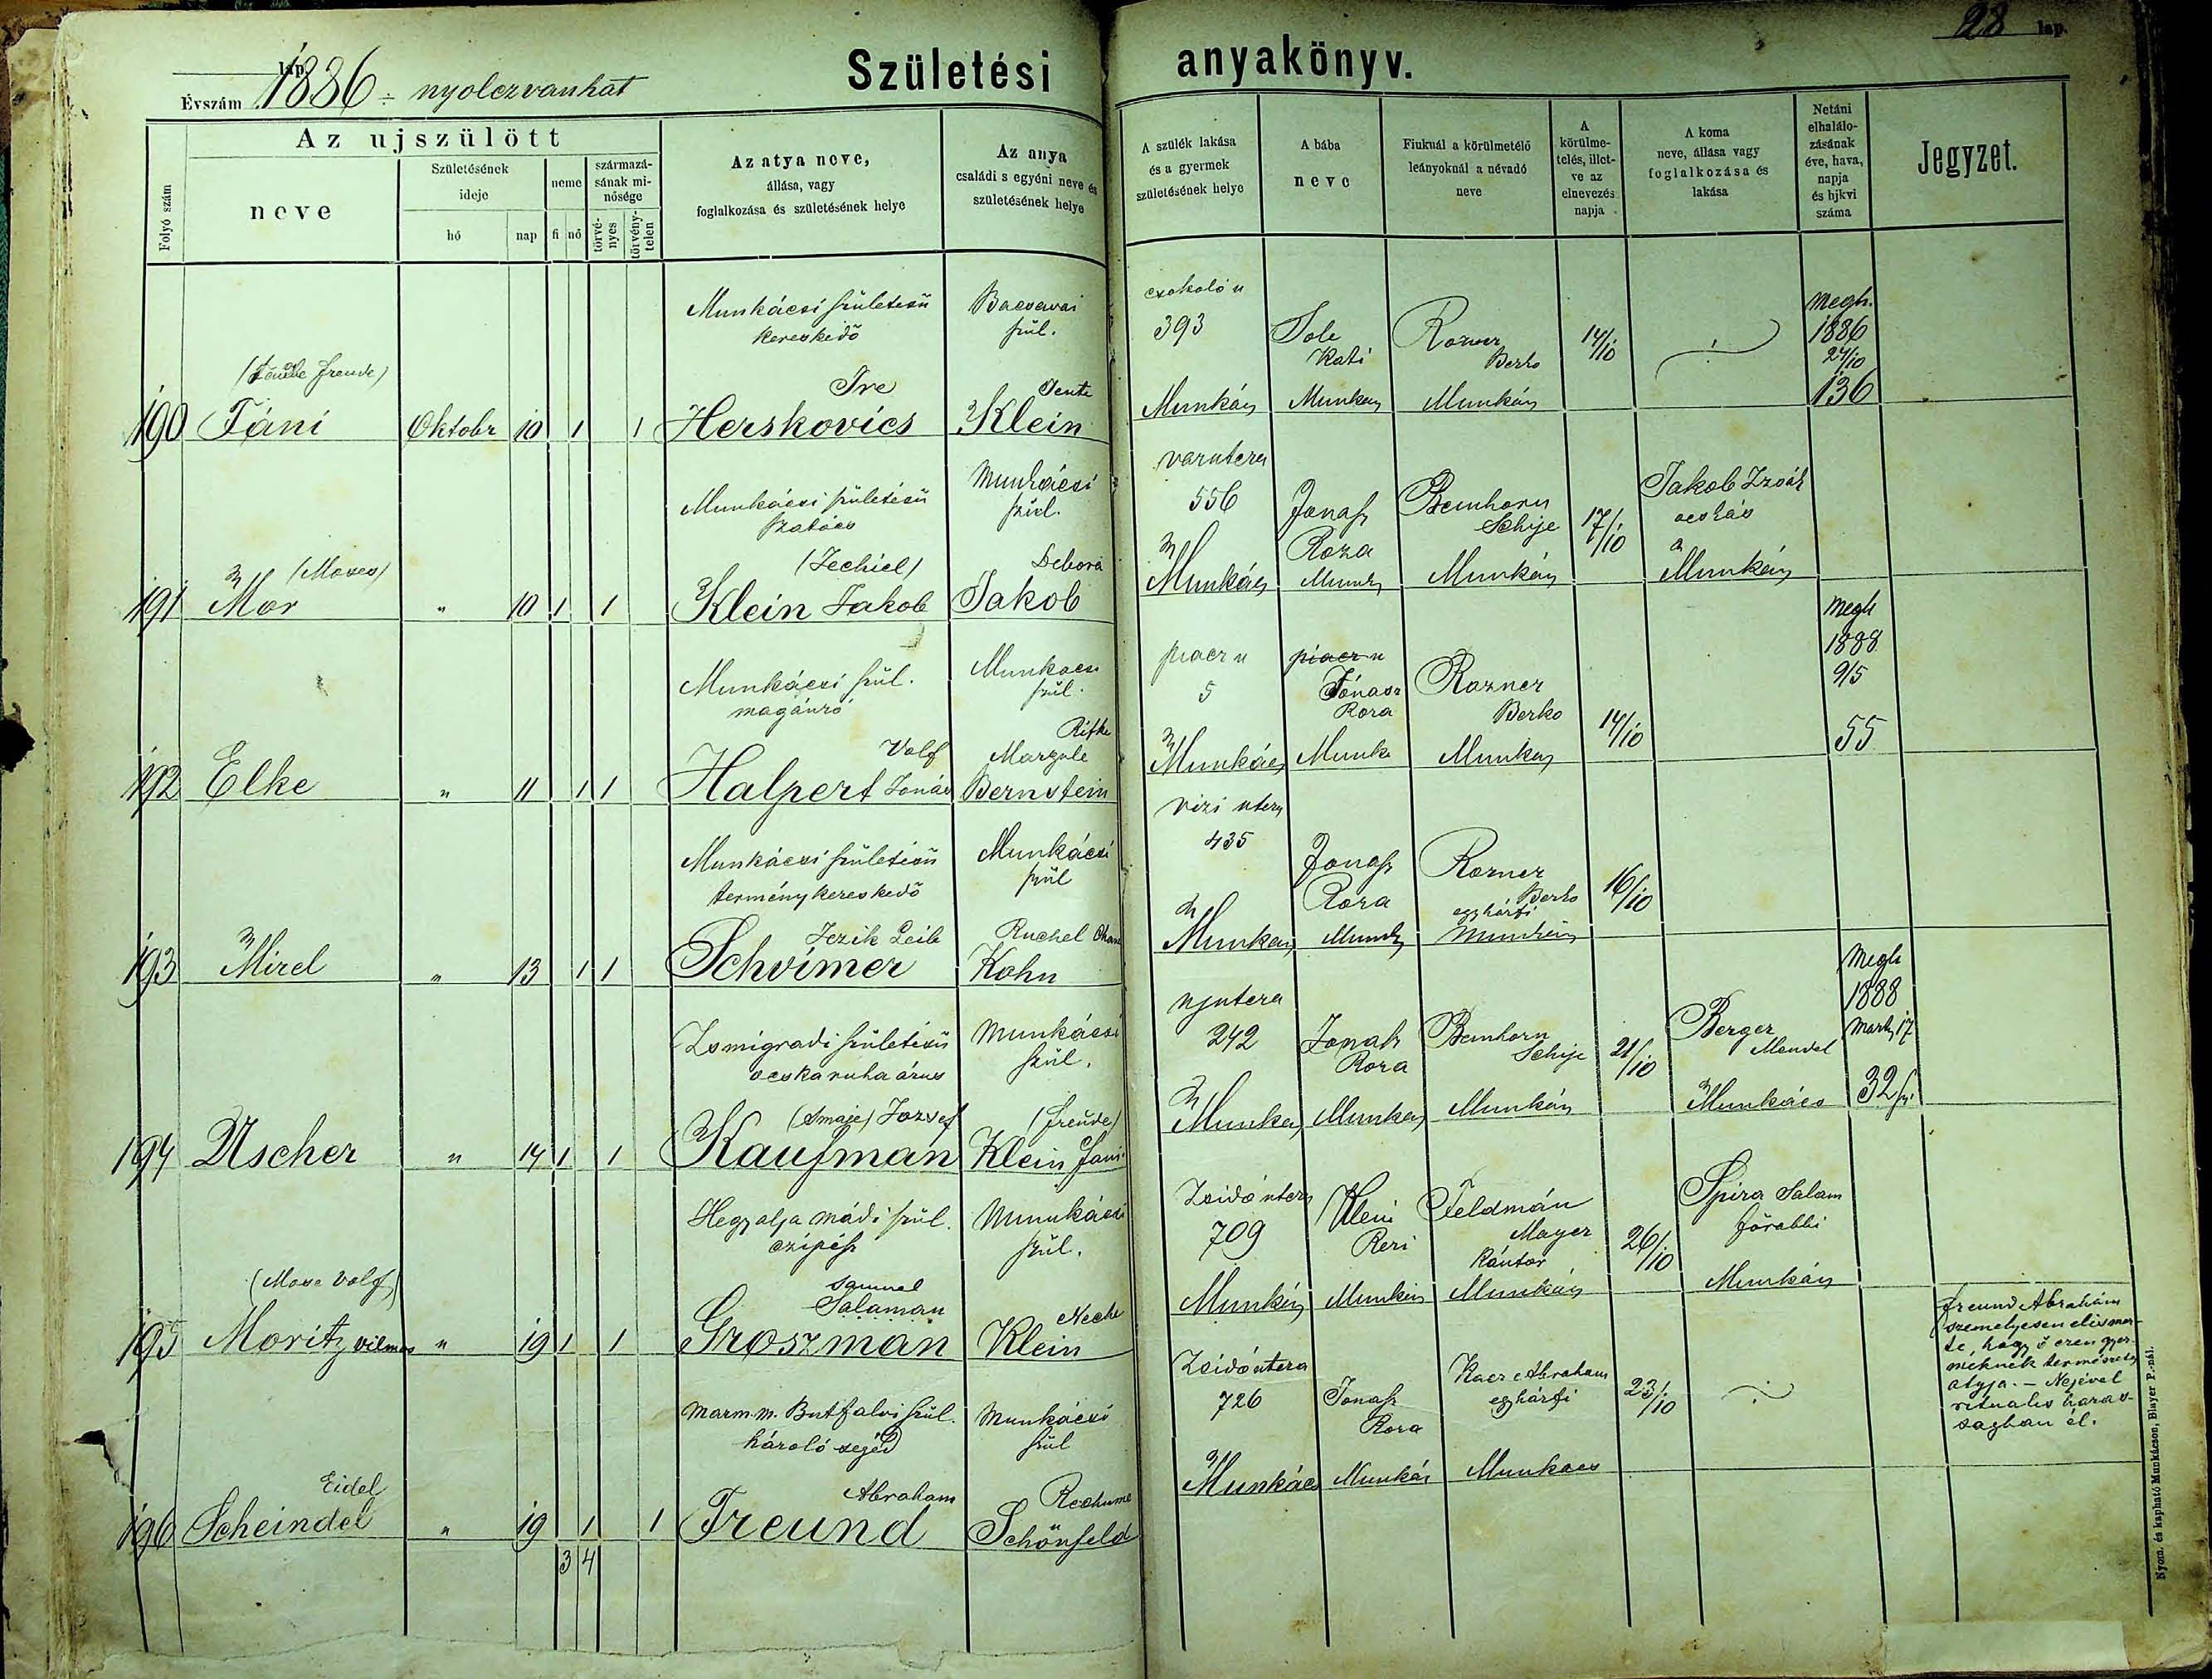 lap.
Évszám 1886 - nyolczvanhat
Születési anyakönyv.
28 lap.
Folyó szám
Az ujszülött
neve
Születésének ideje
hó
nap
neme
fi
nő
származásának minősége
törvényes
törvénytelen
Az atya neve,
állása, vagy
foglalkozása és születésének helye
Az anya
családi s egyéni neve és
születésének helye
A szülék lakása
és a gyermek
születésének helye
A bába
neve
Fiuknál a körülmetélő
leányoknál a névadó
neve
A
körülme-
telés, illet-
ve az
elnevezés
napja
A koma
neve, állása vagy
foglalkozása és
lakása
Netáni
elhalálo-
zásának
éve, hava,
napja
és hjkvi
száma
Jegyzet.
190
Fáni
Oktobr 10 1 1
Munkácsi születésü
kereskedő
Herskovics
szül.
Klein
393
Kati
Munkács
Rozner
Berko
Munkács
14/10
Megh.
1886
24/10
136
191
(Moses)
Mor
" 10 1 1
Munkácsi születésü
szatócs
(Jechiel)
Klein Jakob
Munkácsi
szül.
Debora
Jakob
varutcza
556
Munkács
Jonasz
Roza
Munkács
Bernhorn
Schije
Munkács
17/10
Jakob Izsák
Munkács
192
Elke
" 11 1 1
Munkácsi szül.
magánzó
Volf
Halpert Jonás
Munkacsi
szül.
Rifke
Margule
Bernstein
piacz u
5
Munkács
piacz u
Jónasz
Roza
Munkács
Rozner
Berko
Munkács
14/10
Megh
1888
9/5
55
193
Mirel
" 13 1 1
Munkácsi születésü
terménykereskedő
Jezik Leib
Schvimer
Munkácsi
szül
Ruchel
Kohn
vizi utcza
435
Munkács
Jonasz
Roza
Munkács
Rozner
Berko
egyházfi
Munkács
16/10
194
Ascher
" 14 1 1
Zsmigradi születésü
ocskaruha árus
József
Kaufman
Munkácsi
szül.
(Freude)
Klein Fani
ujutcza
242
Munkács
Jonasz
Roza
Munkács
Bernhorn
Schije
Munkács
21/10
Berger
Mendel
Munkács
Megh
1888
17
32
195
(Mose Volf)
Moritz vilmos
" 19 1 1
Hegyalja mádi szül.
czipész
Samuel
Salaman
Groszman
Munkácsi
szül.
Neche
Klein
Zsidó utcza
709
Munkács
Klein
Rezi
Munkács
Feldmán
Mayer
Kántor
Munkács
26/10
Spira Salam
főrabbi
Munkács
196
Eidel
Scheindel
" 19 1 1
szül.
házaló segéd
Abraham
Freund
Munkácsi
szül
Schönfeld
Zsidó utcza
726
Munkács
Jonasz
Roza
Munkács
Abraham
egyházfi
Munkacs
23/10
Freund Abrahám
személyesen elismer-
te, hogy ő ezen gyer-
meknek természetes
atyja. - Nejével
rituális házas-
ságban él.
3 4
Nyom. és kapható Munkácson, Blayer P.-nál.